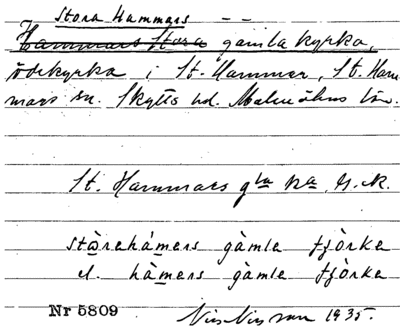 Stora Hammars — —
Hammars Stora gamla kyrka,
ödekyrka i St. Hammar, St. Ham
mars sn. Skytts hd. Malmöhus län.
St. Hammars gla ka, N. K.
stòrahámers gàmle fjòrke
el. hàmers gàmle fjòrke
Nr 5809
Nils Nilsson 1935.